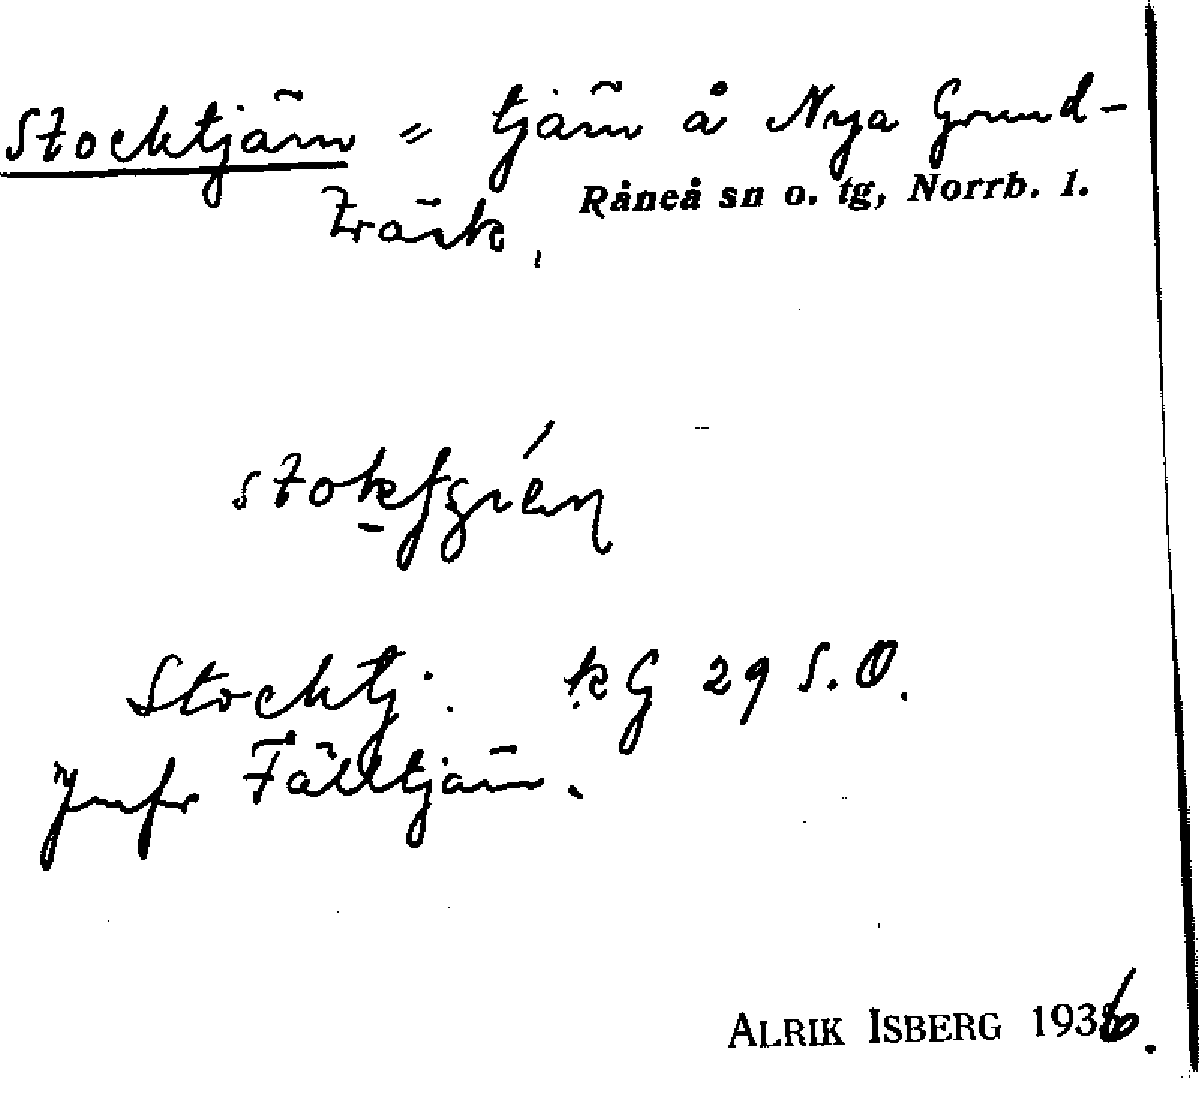 Stocktjärn = tjärn å Nya Grund-
träsk.
Råneå sn o. tg, Norrb. l.
Stocktj. kG 29 S.O.
Jmfr Fälltjärn.
ALRIK ISBERG 1936.